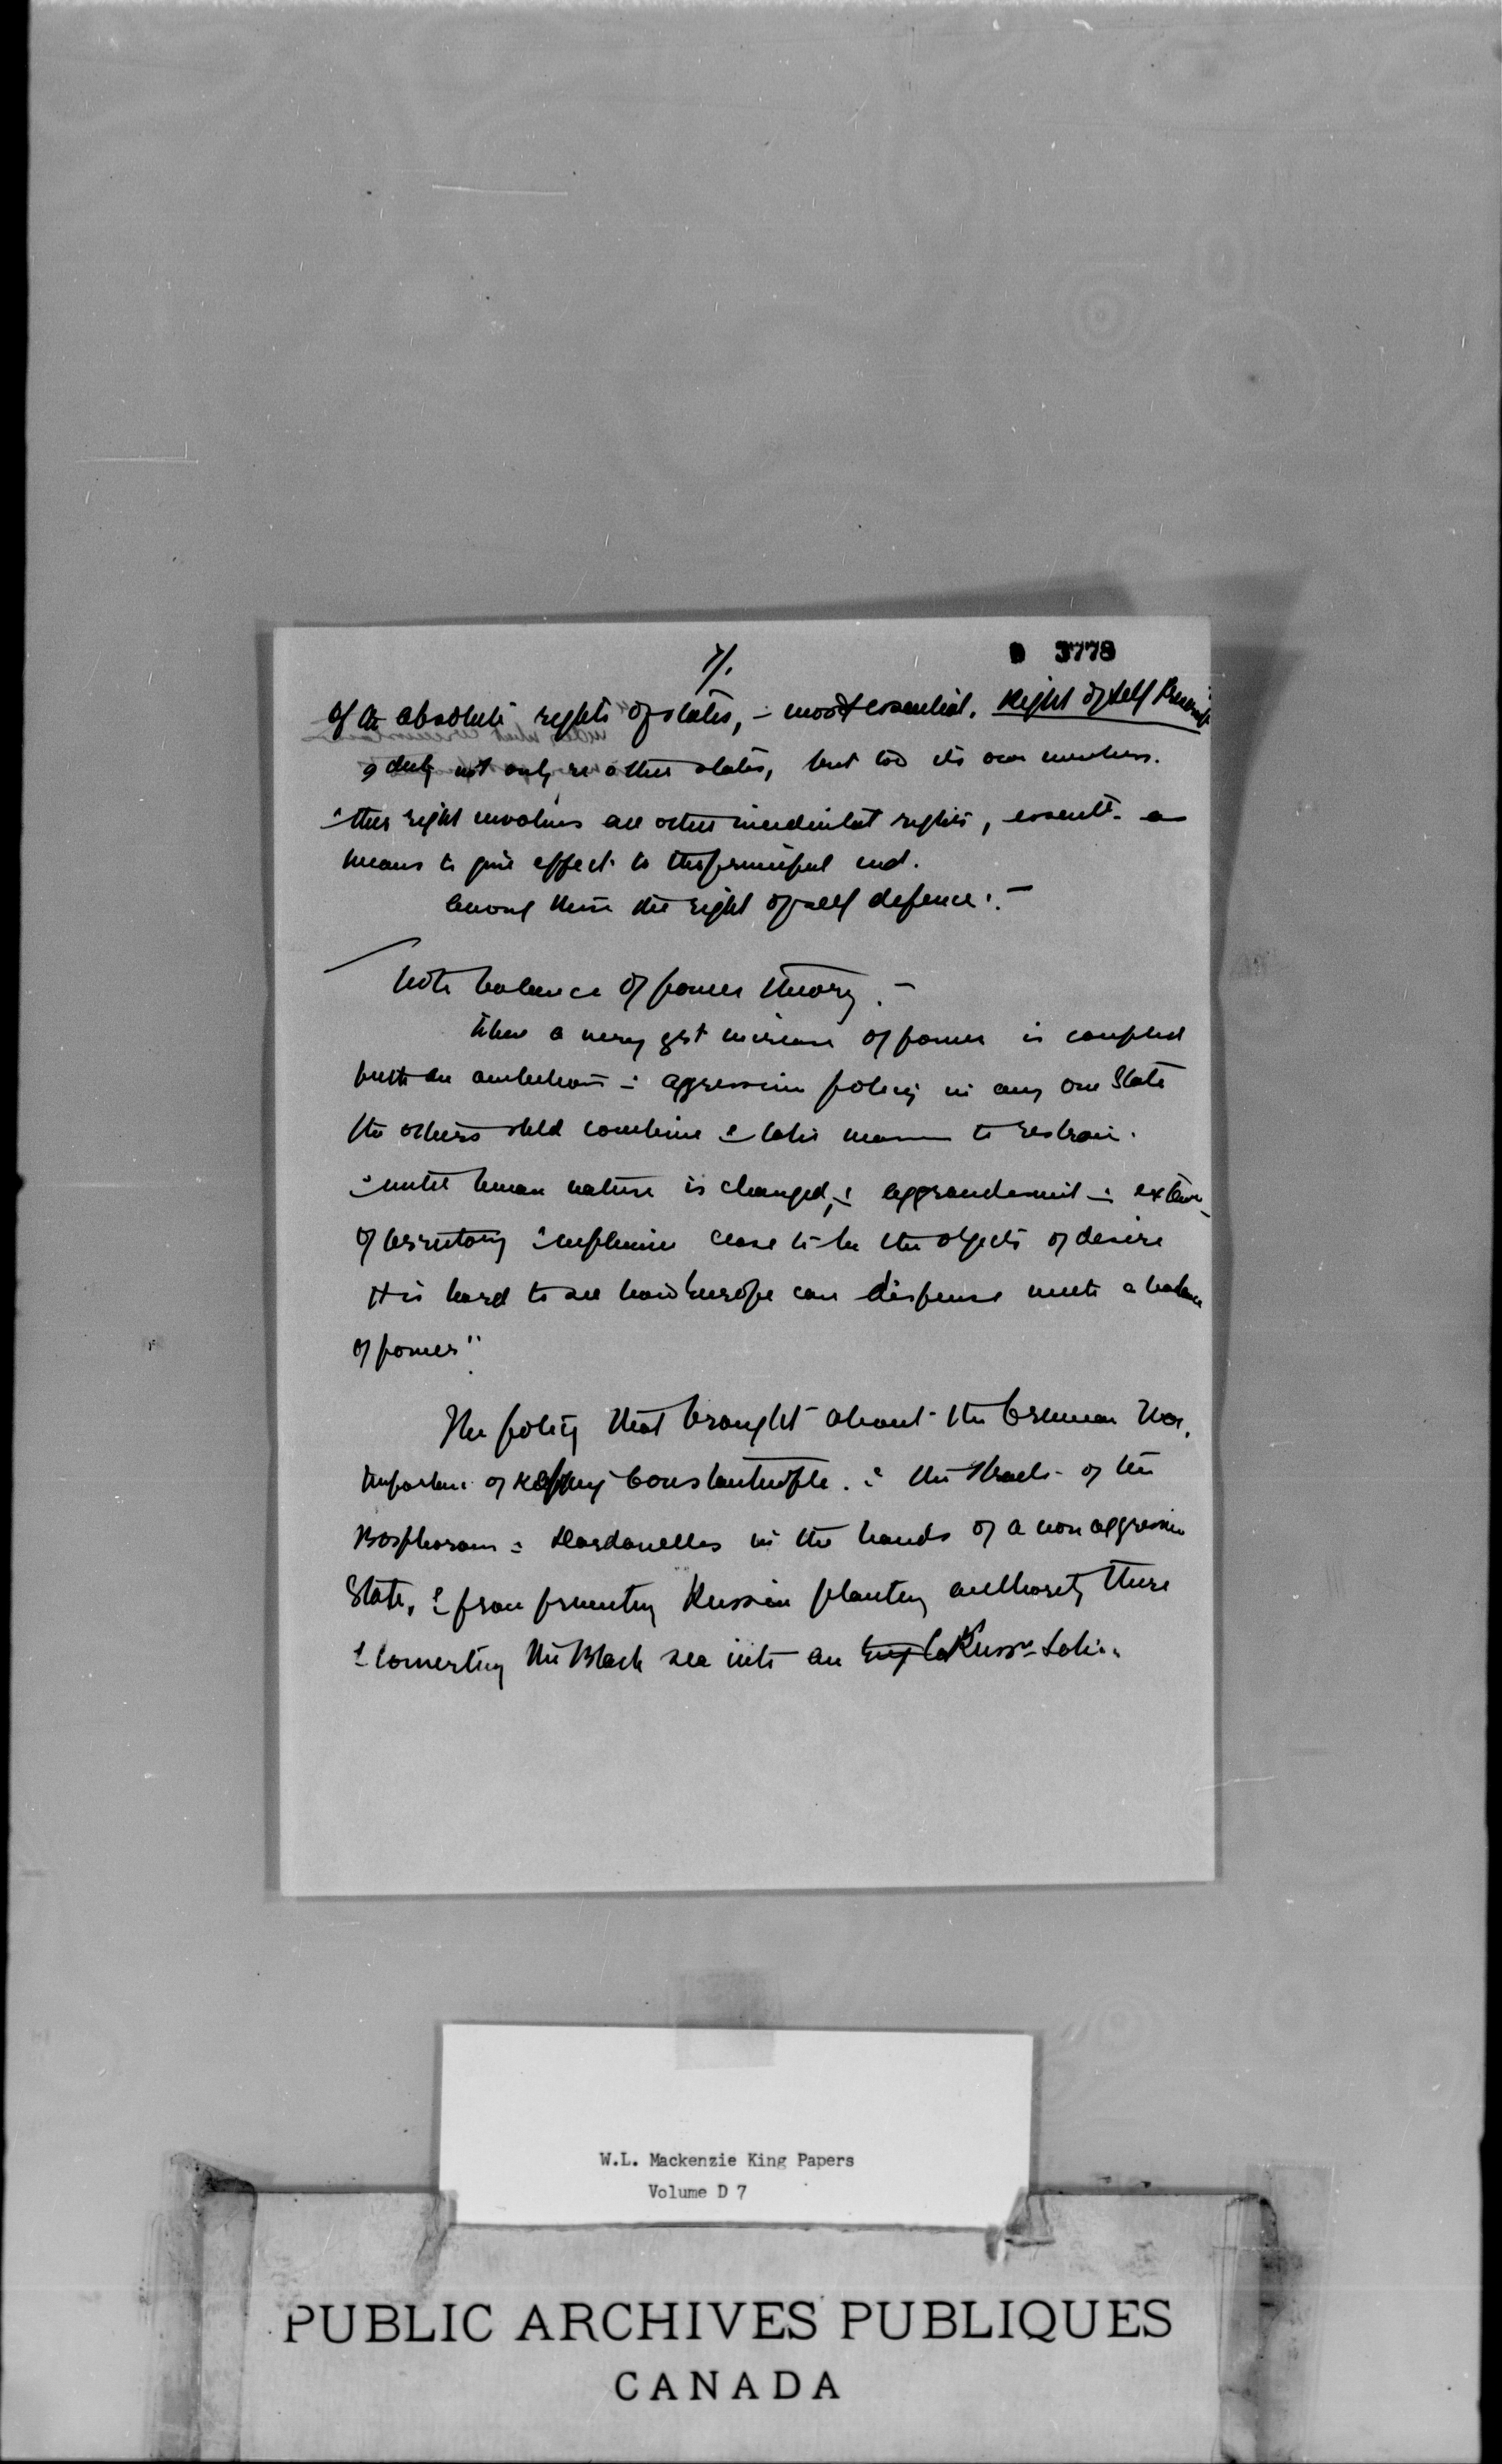 7/.
D 3778
of the absolute rights of states, - most essential. Right of self
a duty not only re other states, but to its own members.
this right involves all other incidental rights, essentl. as
means to give effect to the principal end.
Among these the right of self defence :-
Note balance of power theory. -
When a very grt increase of power is coupled
with an ambitious & agressive policy in any one State
the others shld combine & take means to restrain.
"until human nature is changed, & aggrandisement & exten
of territory & influence cease to be the objects of desire
it is hard to see how Europe can dispense with a balance
of power"
The policy that brought about the Crimean War.
Importance of keeping Constantinople. & the Straits of the
Bosphorous & Dardanelles in the hands of a non aggressive
State, & from preventing Russia planting authority there
& converting the Black sea into an Russn
W.L. Mackenzie King Papers
Volume D 7
PUBLIC ARCHIVES PUBLIQUES
CANADA